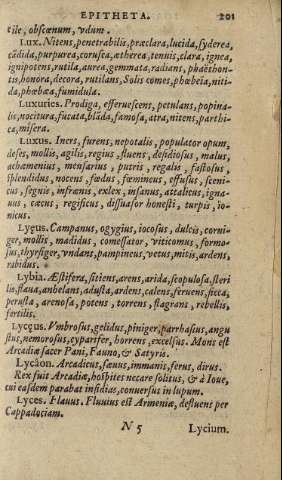 EPITHETA. 201
tile, obscœnum, vdum.
Lux. Nitens, penetrabilis, præclara, lucida, syderea,
cādida, purpurea, corusca, ætherea, tenuis, clara, ignea,
ignipotens, rutila, aurea, gemmata, radians, phaëthon-
tis, honora, decora, rutilans, Solis comes, phœbeia, niti-
da, phœbæa, fumidula.
Luxuries. Prodiga, efferuescens, petulans, popina-
lis, nocitura, fucata, blāda, famosa, atra, nitens, parthi-
ca, misera.
Luxus. Iners, furens, nepotalis, populator opum,
deses, mollis, agilis, regius, fluens, desidiosus, malus,
achæmenius, mensarius, putris, regalis, fastosus,
splendidus, nocens, fœdus, fœmineus, effusus, sceni-
cus, segnis, infrænis, exlex, insanus, attalicus, igna-
uus, cæcus, regificus, dissuasor honesti, turpis, io-
nicus.
Lyęus. Campanus, ogygius, iocosus, dulcis, corni-
ger, mollis, madidus, comessator, viticomus, formo-
sus, thyrsiger, vndans, pampineus, vetus, mitis, ardens,
rabidus.
Lybia. Æstifera, sitiens, arens, arida, scopulosa, steri
lis, flaua, anbelans, adusta, ardens, calens, feruens, sicca,
perusta, arenosa, potens, torrens, flagrans, rebellis,
fertilis.
Lycęus. Vmbrosus, gelidus, piniger, parrhasius, angu
stus, nemorosus, cyparifer, horrens, excelsus. Mons est
Arcadiæ sacer Pani, Fauno, & Satyris.
Lycāon. Arcadicus, sæuus, immanis, ferus, dirus.
Rex fuit Arcadiæ, hospites necare solitus, & à Ioue,
cui easdem parabat insidias, conuersus in lupum.
Lyces. Flauus. Fluuius est Armeniæ, defluens per
Cappadociam.
N 5 Lycium.